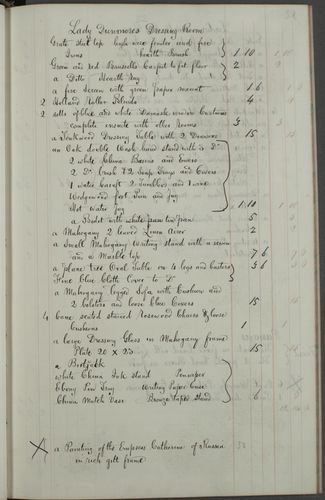 Lady Dunmore's Dressing Room
Grate slate top high wire fender and fire
Irons hearth Brush 1 10
Green and red Brussels Carpet to fit floor 2
a Ditto Hearth rug
a fire Screen with green paper mount 1 6
2 Holland Roller Blinds 4
2 setts of blue and white Damask window Curtains
complete ensuite with other Rooms 3
a Teakwood Dressing Table with 2 Drawers 15
an Oak double Wash hand stand with 3 Do
2 white China Basins and Ewers
2 Do brush & 2 Soap Trays and Covers
1 water Caraft 2 Tumblers and 1 wine
Wedgewood foot Tun and Jug
Hot Water Jug 1 10
a Bidet with white pan Tin pan 5
a Mahogany 2 leaved Linen Airer 2
a Small Mahogany Writing stand with a screen
and a Marble top 7 6
a plane tree Oval Table on 4 legs and castors 3 6
Fine blue Cloth Cover to Do
a Mahogany legged Sofa with Cushion and
2 bolsters and loose blue Covers 15
4 Cane seated stained Rosewood Chairs & loose
Cushions 1
a large Dressing Glass in Mahogany frame
Plate 20 x 23 15
a Bootjack
white China Ink stand Penwiper
Ebony Pen Tray Writing Paper Case
China Match Case Bronze Taper stand 6
X a Painting of the Empress Catherine of Russia 50
in rich gilt frame